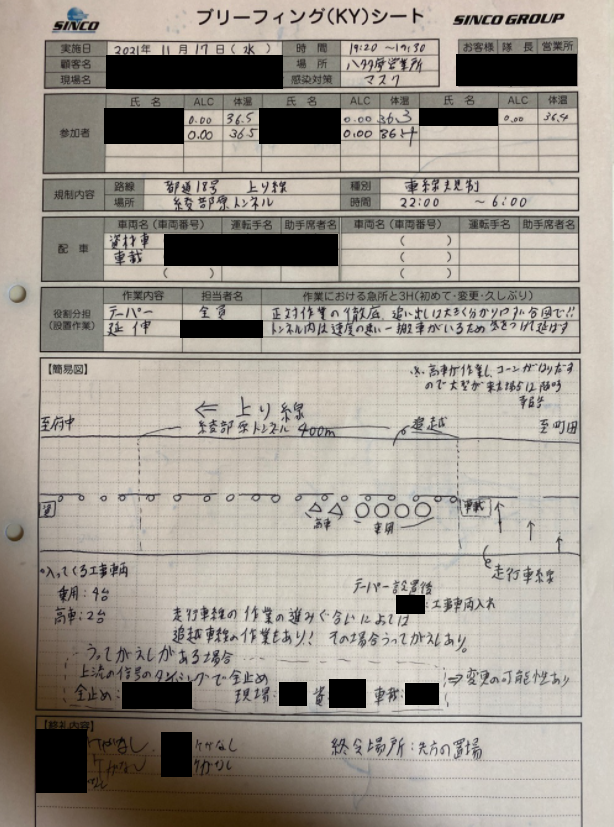 SINCO
ブリーフィング(KY)シート
SINCO GROUP
実施日 2021年 11月 17日(水) 時間 19:20 ~19:30 お客様 隊長 営業所
顧客名 場所 営業所
現場名 感染対策 マスク
参加者 氏名 ALC 体温 氏名 ALC 体温 氏名 ALC 体温
0.00 36.5 0.00 36.3 0.00 36.4
0.00 36.5 0.00 36.4
規制内容 路線 都道18号 上り線 種別 車線規制
場所 綾部原トンネル 時間 22:00 ~ 6:00
配車 車両名(車両番号) 運転手名 助手席者名 車両名(車両番号) 運転手名 助手席者名
資材車 ( )
車載 ( )
( ) ( )
役割分担(設置作業) 作業内容 担当者名 作業における急所と3H(初めて・変更・久しぶり)
テーパー 全員 正対作業の徹底、追い出しは大きく分かりやすい合図で!!
延伸 トンネル内は速度の速い一般車がいるため 気をつけて延ばす
【簡易図】
※高車が作業し、コーンがはりだすので大型が来た場合は随時
⇐ 上り線
至府中 綾部原トンネル 400m 追越 至町田
資 車載
高車 乗用
走行車線
入ってくる工事車両
乗用:4台
高車:2台
テーパー設置後
:工事車両入れ
走行車線の作業の進みぐあいによっては
追越車線の作業もあり! その場合うってがえしあり。
うってがえしがある場合
上流の信号のタイミングで全止め
全止め: 現場: 資: 車載: ⇒変更の可能性あり
【終礼内容】
ケガなし ケガなし 終令場所:先方の置場
ケガなし ケガなし
なし